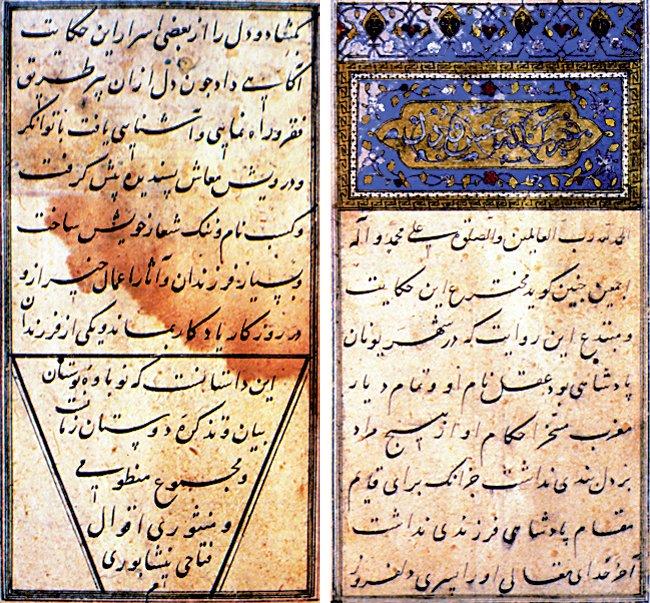 حسن و دل
الحمد لله رب العالمین والصلوة علی محمد و آله
اجمعین چنین کوید مخترع این حکایت
و مبتدع این روایت که در شهر یونان
پادشاهی بود عقل نام او و تمام دیار
مغرب مسخر احکام او از هیچ مراد
بر دل بندی نداشت جز آنک برای قایم
مقام پادشاهی فرزندی نداشت
آخر خدای متعالی او را پسری دلفروز
بکشاد و دل را از بعضی اسرار این حکایت
آکاهی داد چون دل از ان پیر طریق
فقر و راه نمایی و آشنایی یافت با توانکر
و درویش معاش پسندیده پیش کرفت
و کسب نام و ننک شعار خویش ساخت
و بسیار فرزندان و آثار اعمال خیر از و
در روزکار یادکار بماند و یکی از فرزندان
این داستانست که نوباوه بوستان
بیان و تذکره دوستان زمانست
و مجموع منظومی
و منثوری اقوال
فتاحی نیشابوری